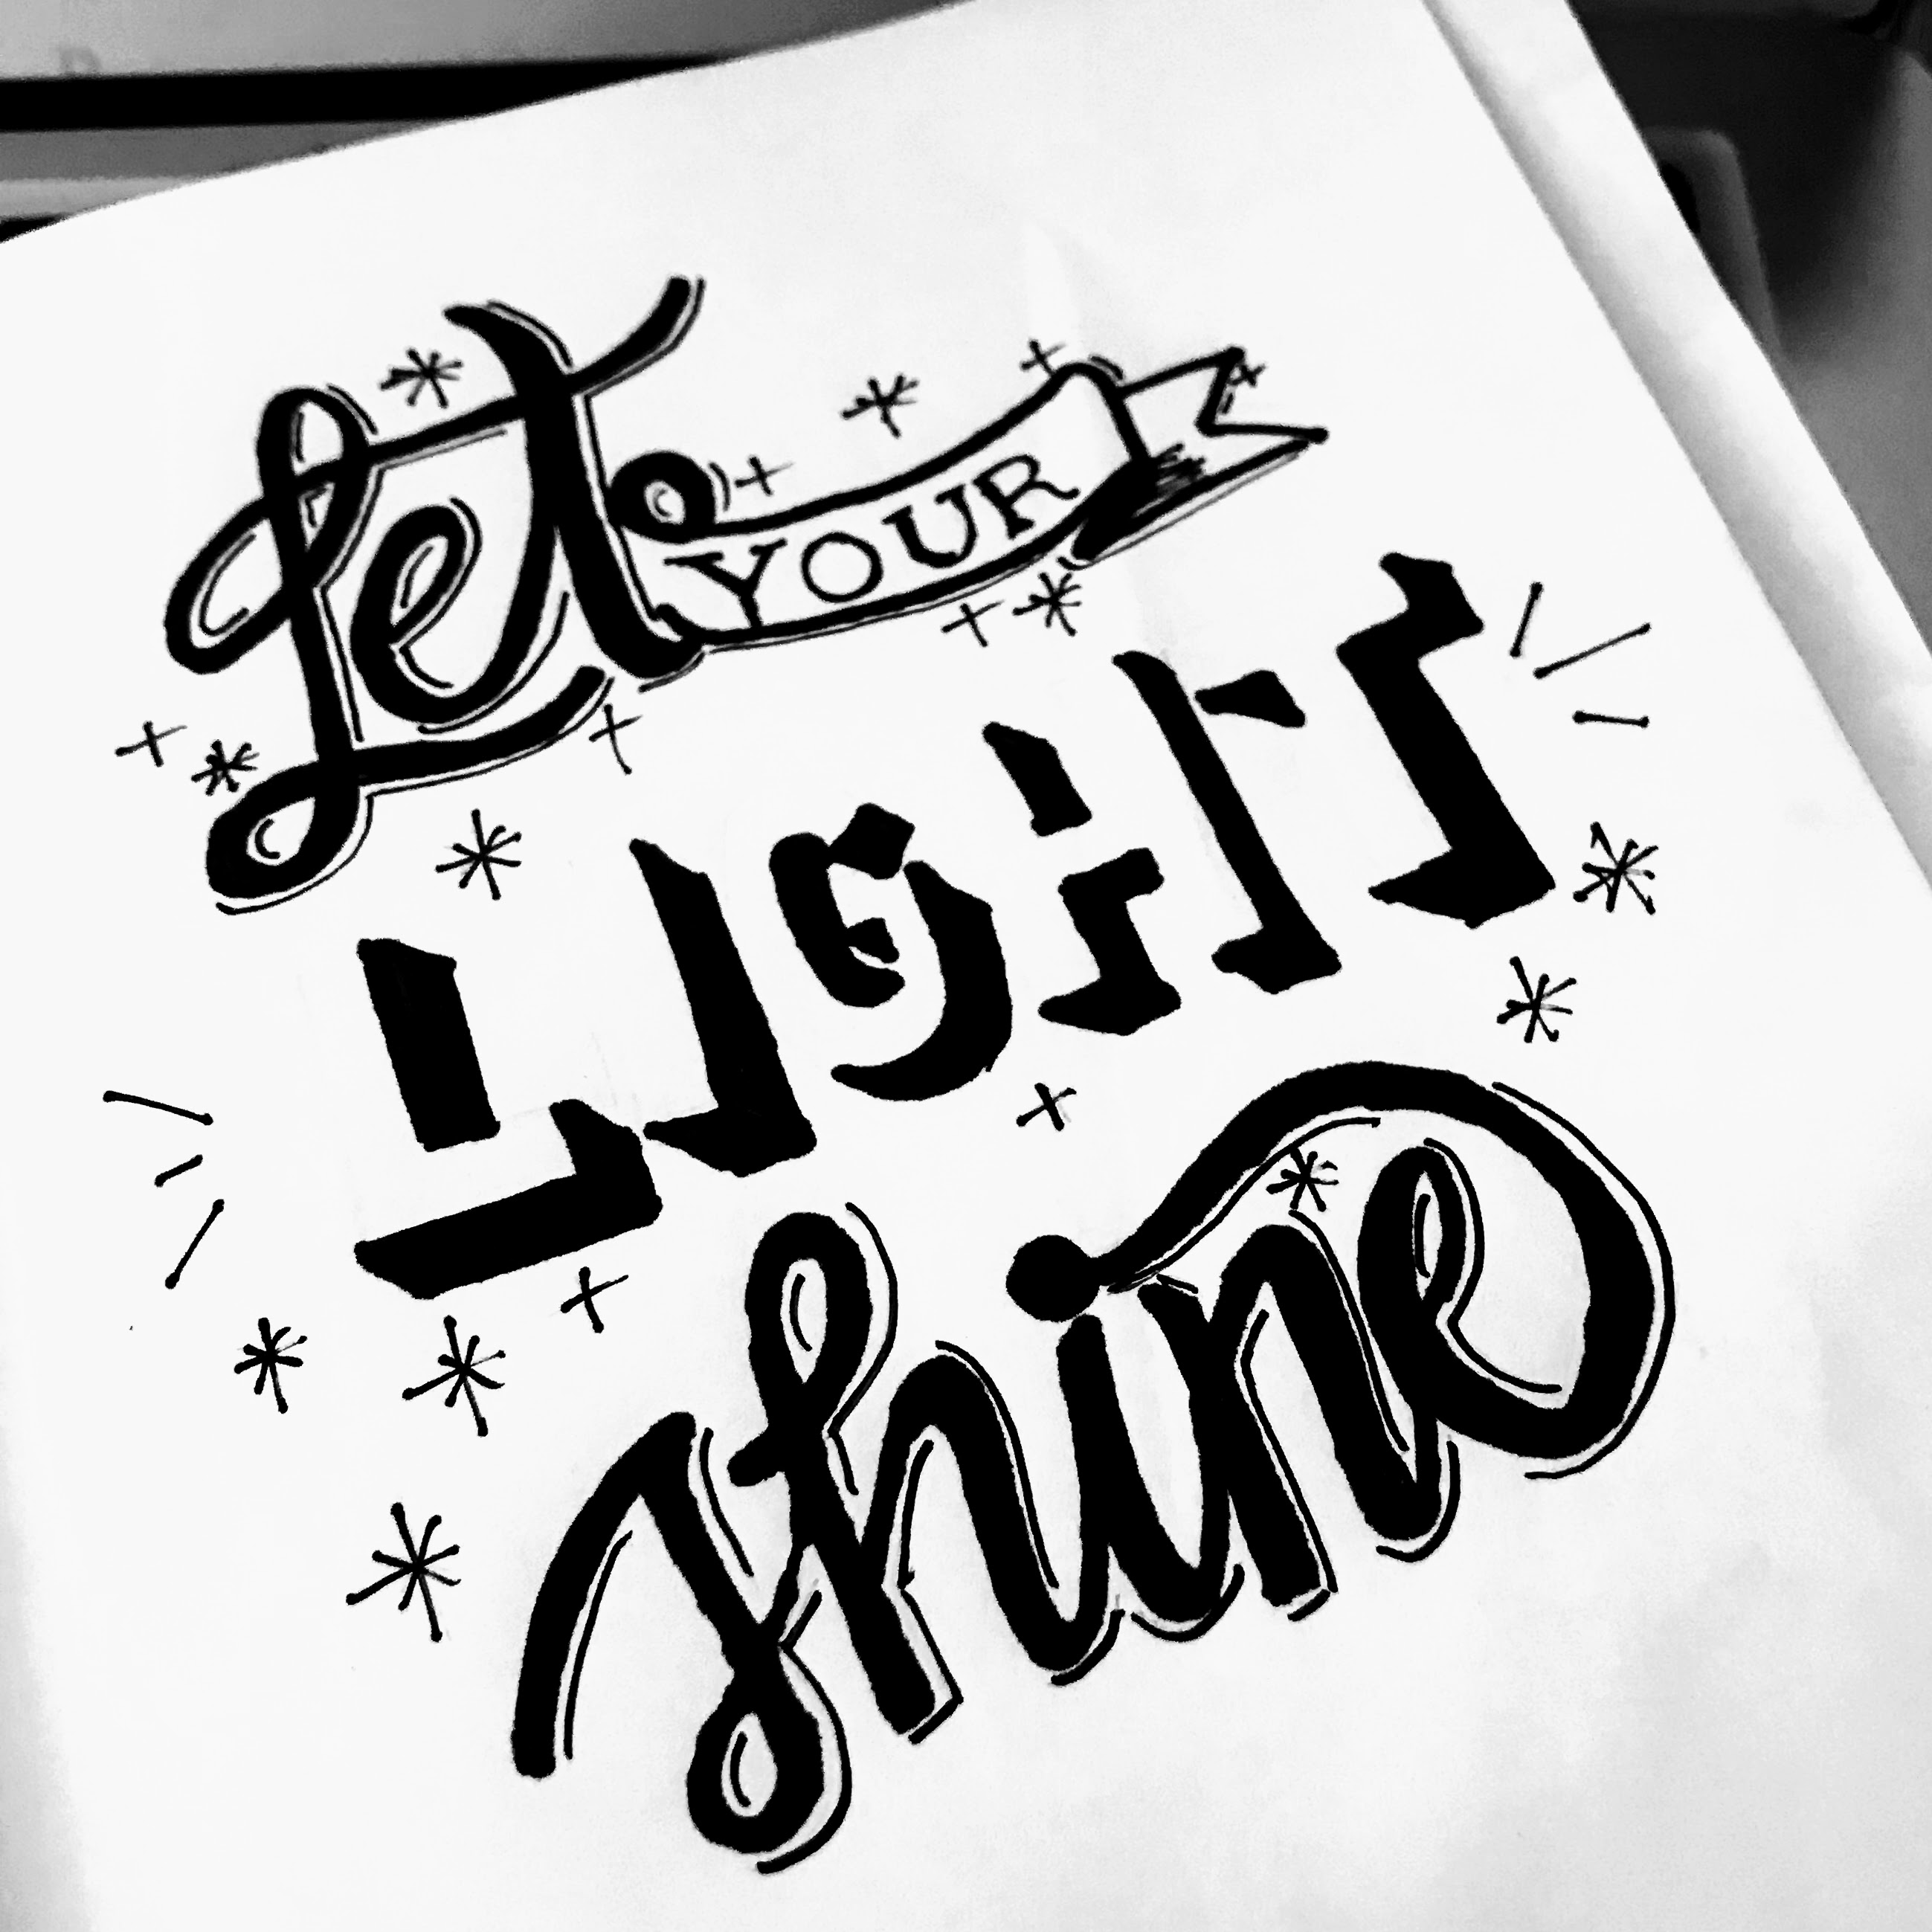 Let YOUR
LIGHT
shine